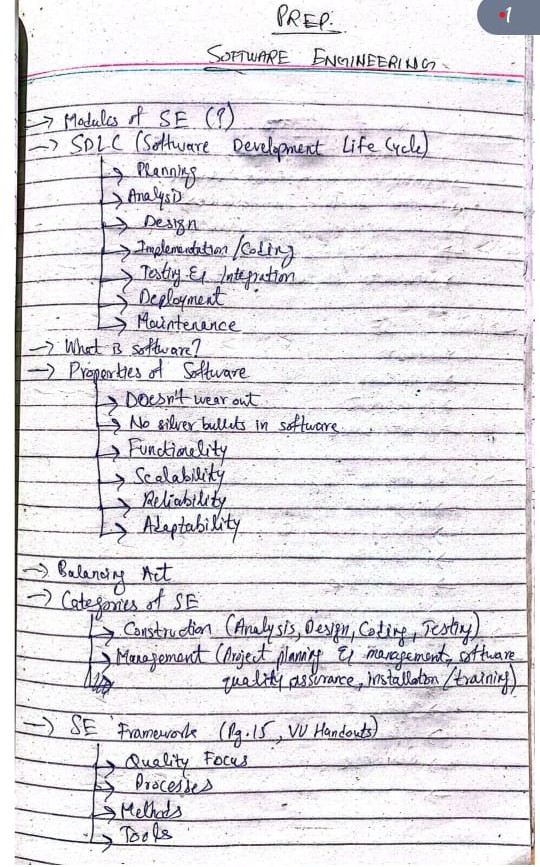 1
PREP.
SOFTWARE ENGINEERING.
→ Modules of SE (?)
→ SDLC (Software Development Life Cycle)
→ Planning
→ Analysis
→ Design
→ Implementation / Coding
→ Testing & Integration
→ Deployment
→ Maintenance
→ What is software?
→ Properties of Software
→ Doesn't wear out
→ No silver bullets in software
→ Functionality
→ Scalability
→ Reliability
→ Adaptability
→ Balancing Act
→ Categories of SE
→ Construction (Analysis, Design, Coding, Testing)
→ Management (Project planning & management, software
quality assurance, installation / training)
→ SE Framework (Pg. 15, VU Handouts)
→ Quality Focus
→ Processes
→ Methods
→ Tools